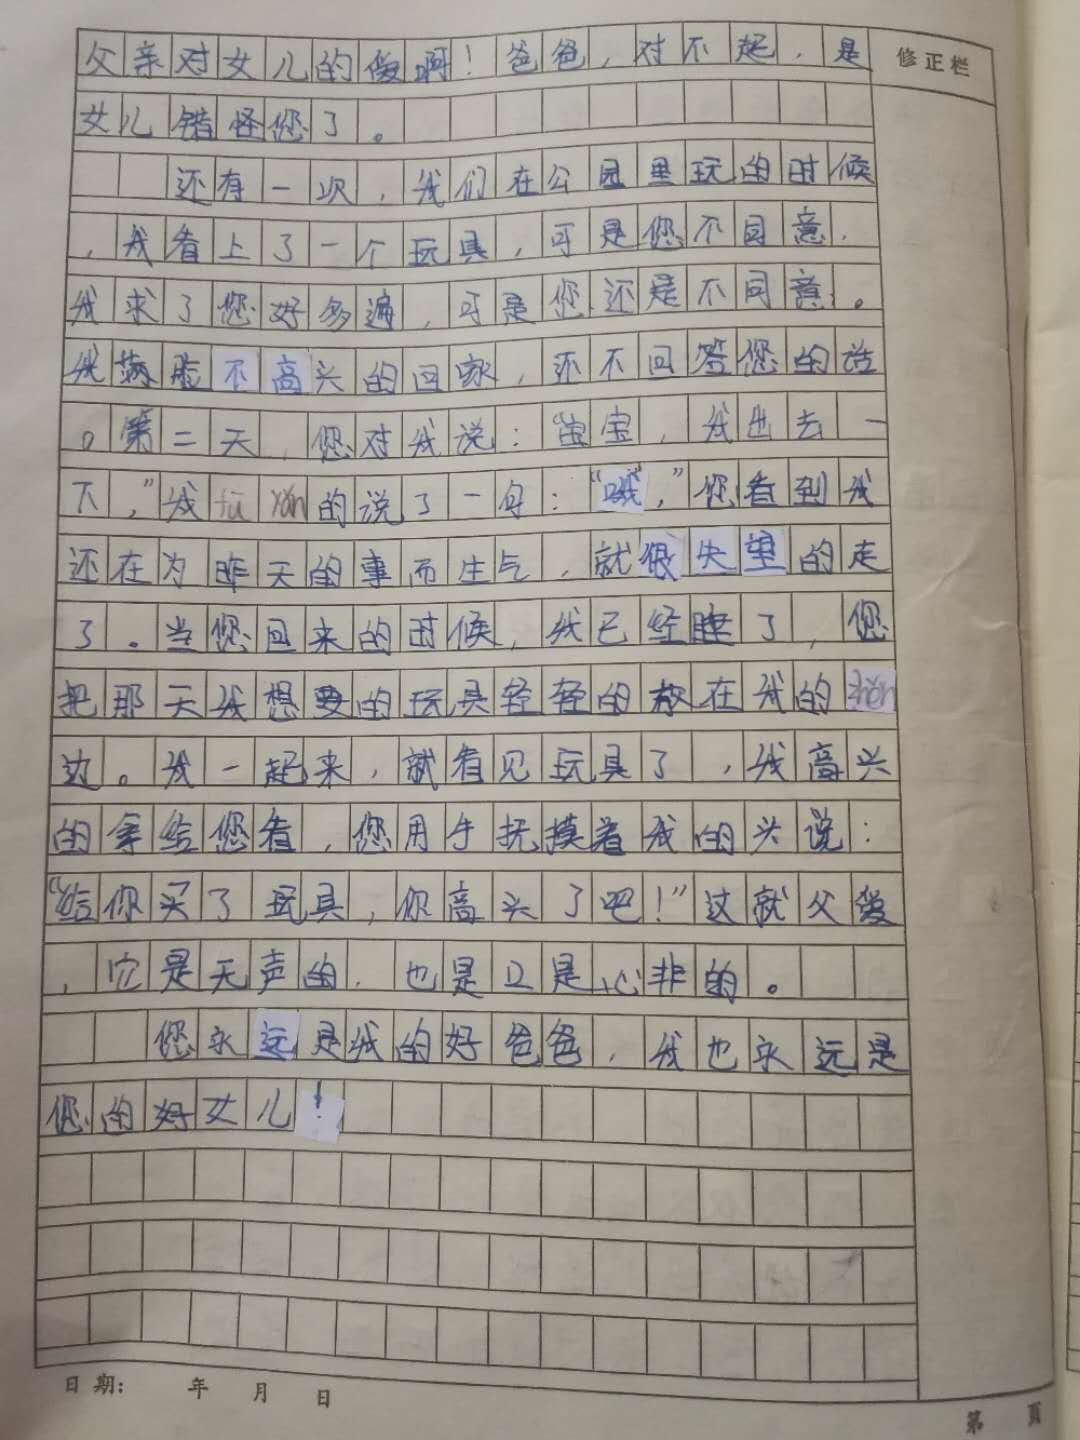 父亲对女儿的爱啊！爸爸，对不起，是
修正栏
女儿错怪您了。
还有一次，我们在公园里玩的时候
，我看上了一个玩具，可是您不同意，
我求了您好多遍，可是您还是不同意。
我满脸不高兴的回家，还不回答您的话
。第二天，您对我说：“宝宝，我出去一
下，”我fū yǎn的说了一句：“哦，”您看到我
还在为昨天的事而生气，就很失望的走
了。当您回来的时候，我已经睡了，您
把那天我想要的玩具轻轻的放在我的zhěn
边。我一起来，就看见玩具了，我高兴
的拿给您看，您用手抚摸着我的头说：
“给你买了玩具，你高兴了吧！”这就父爱
，它是无声的，也是口是心非的。
您永远是我的好爸爸，我也永远是
您的好女儿！
日期： 年 月 日
第 页